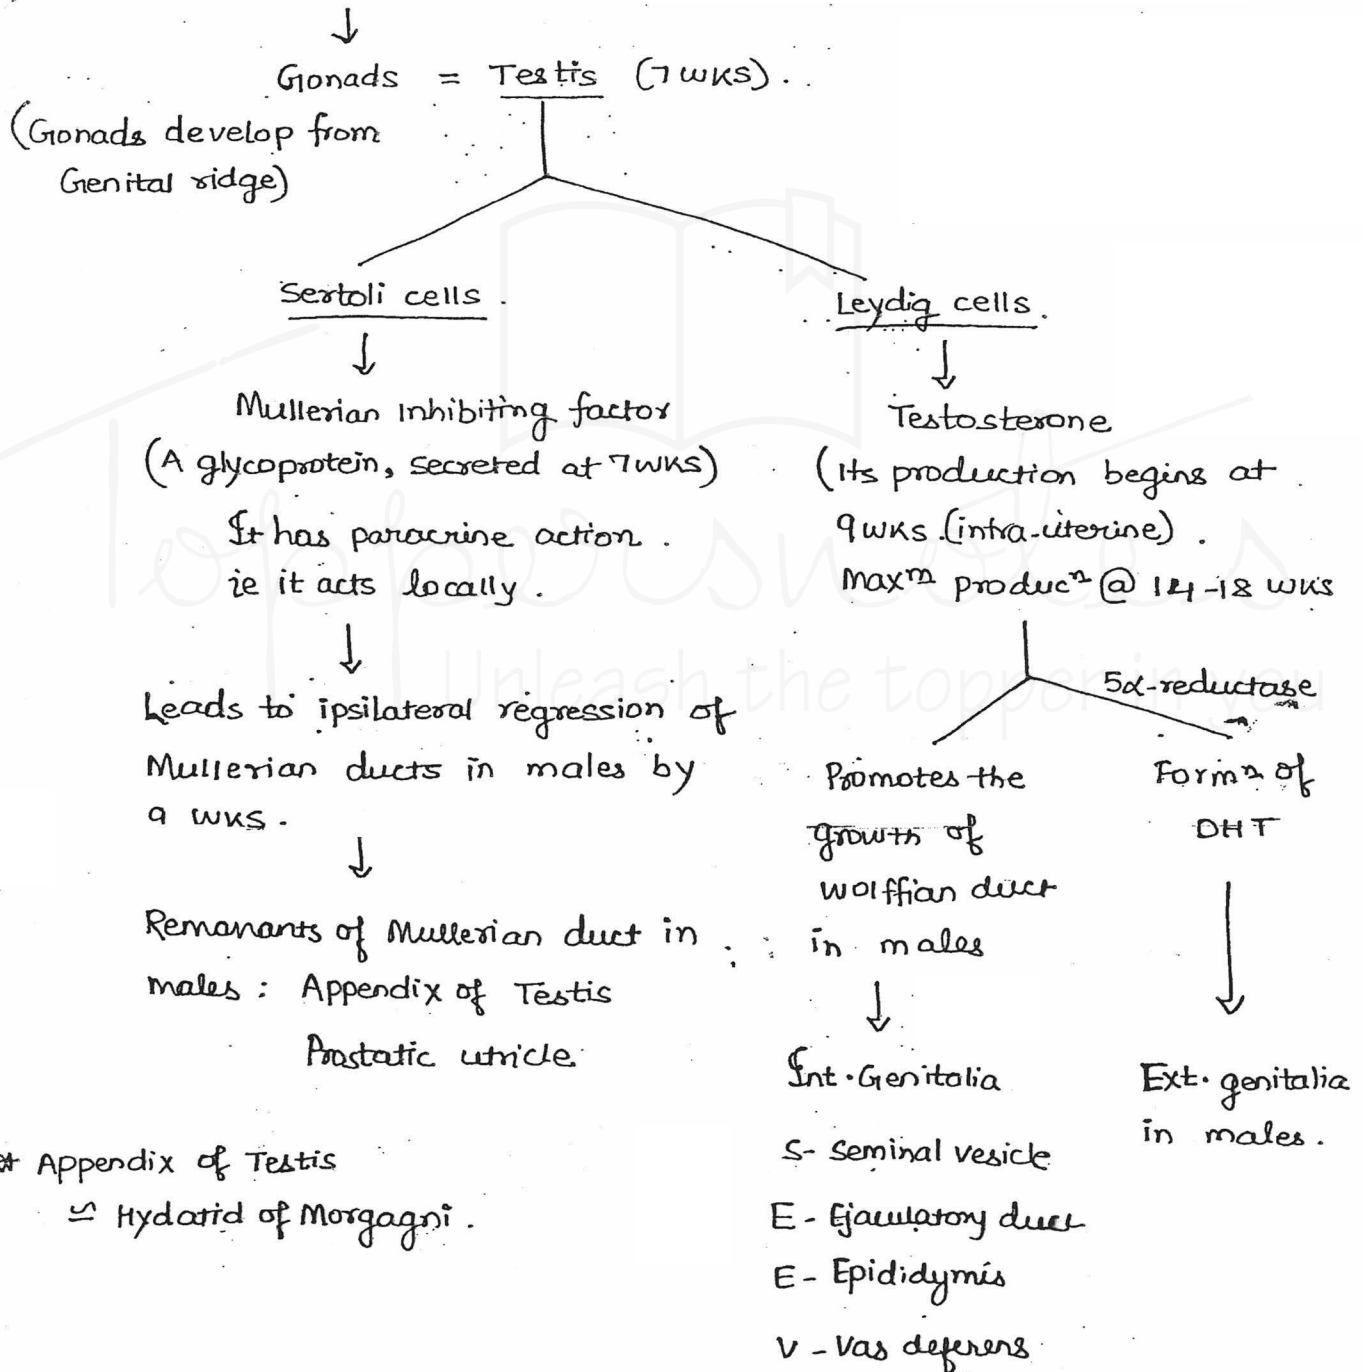 Gonads = Testis (7 wks).
(Gonads develop from
Genital ridge)
Sertoli cells.
Mullerian Inhibiting factor
(A glycoprotein, secreted at 7wks)
It has paracrine action.
ie it acts locally.
Leads to ipsilateral regression of
Mullerian ducts in males by
9 wks.
Remanants of Mullerian duct in
males: Appendix of Testis
Prostatic utricle
* Appendix of Testis
≌ Hydatid of Morgagni.
Leydig cells.
Testosterone
(Its production begins at
9wks (intra-uterine).
Maxᵐ producⁿ @ 14-18 wks
Promotes the
growth of
wolffian duct
in males
Int. Genitalia
S- Seminal vesicle
E- Ejaculatory duct
E- Epididymis
V- Vas deferens
5α-reductase
Formⁿ of
DHT
Ext. genitalia
in males.
Toppersnotes
Unleash the topper in you